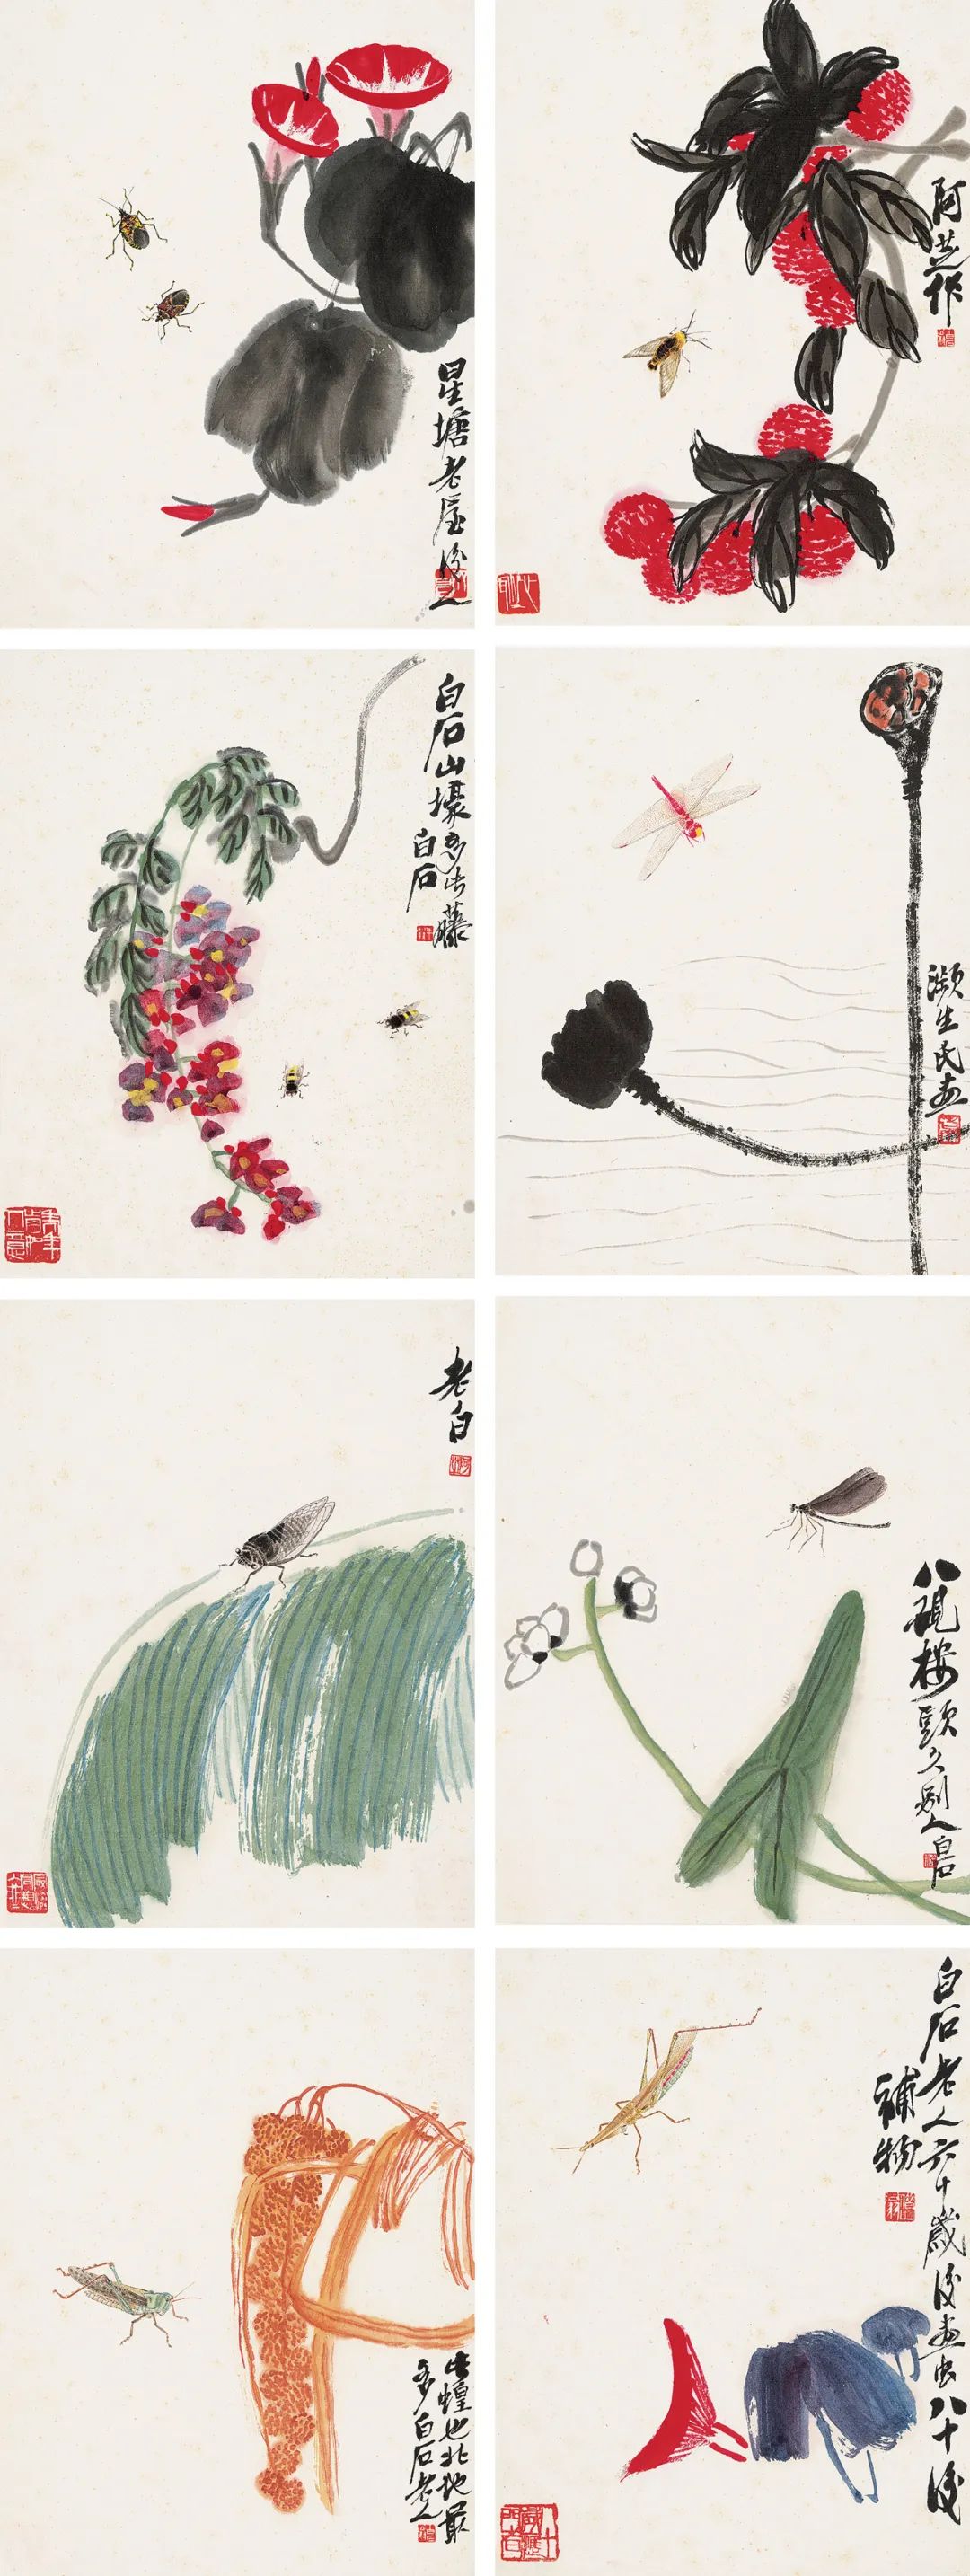 星塘老屋後人
阿芝作
白石山壕多此藤
白石
瀕生氏画
老白
八硯樓頭久別人白石
此蝗也北地最
多白石老人
白石老人六十歲後画虫八十後
補物